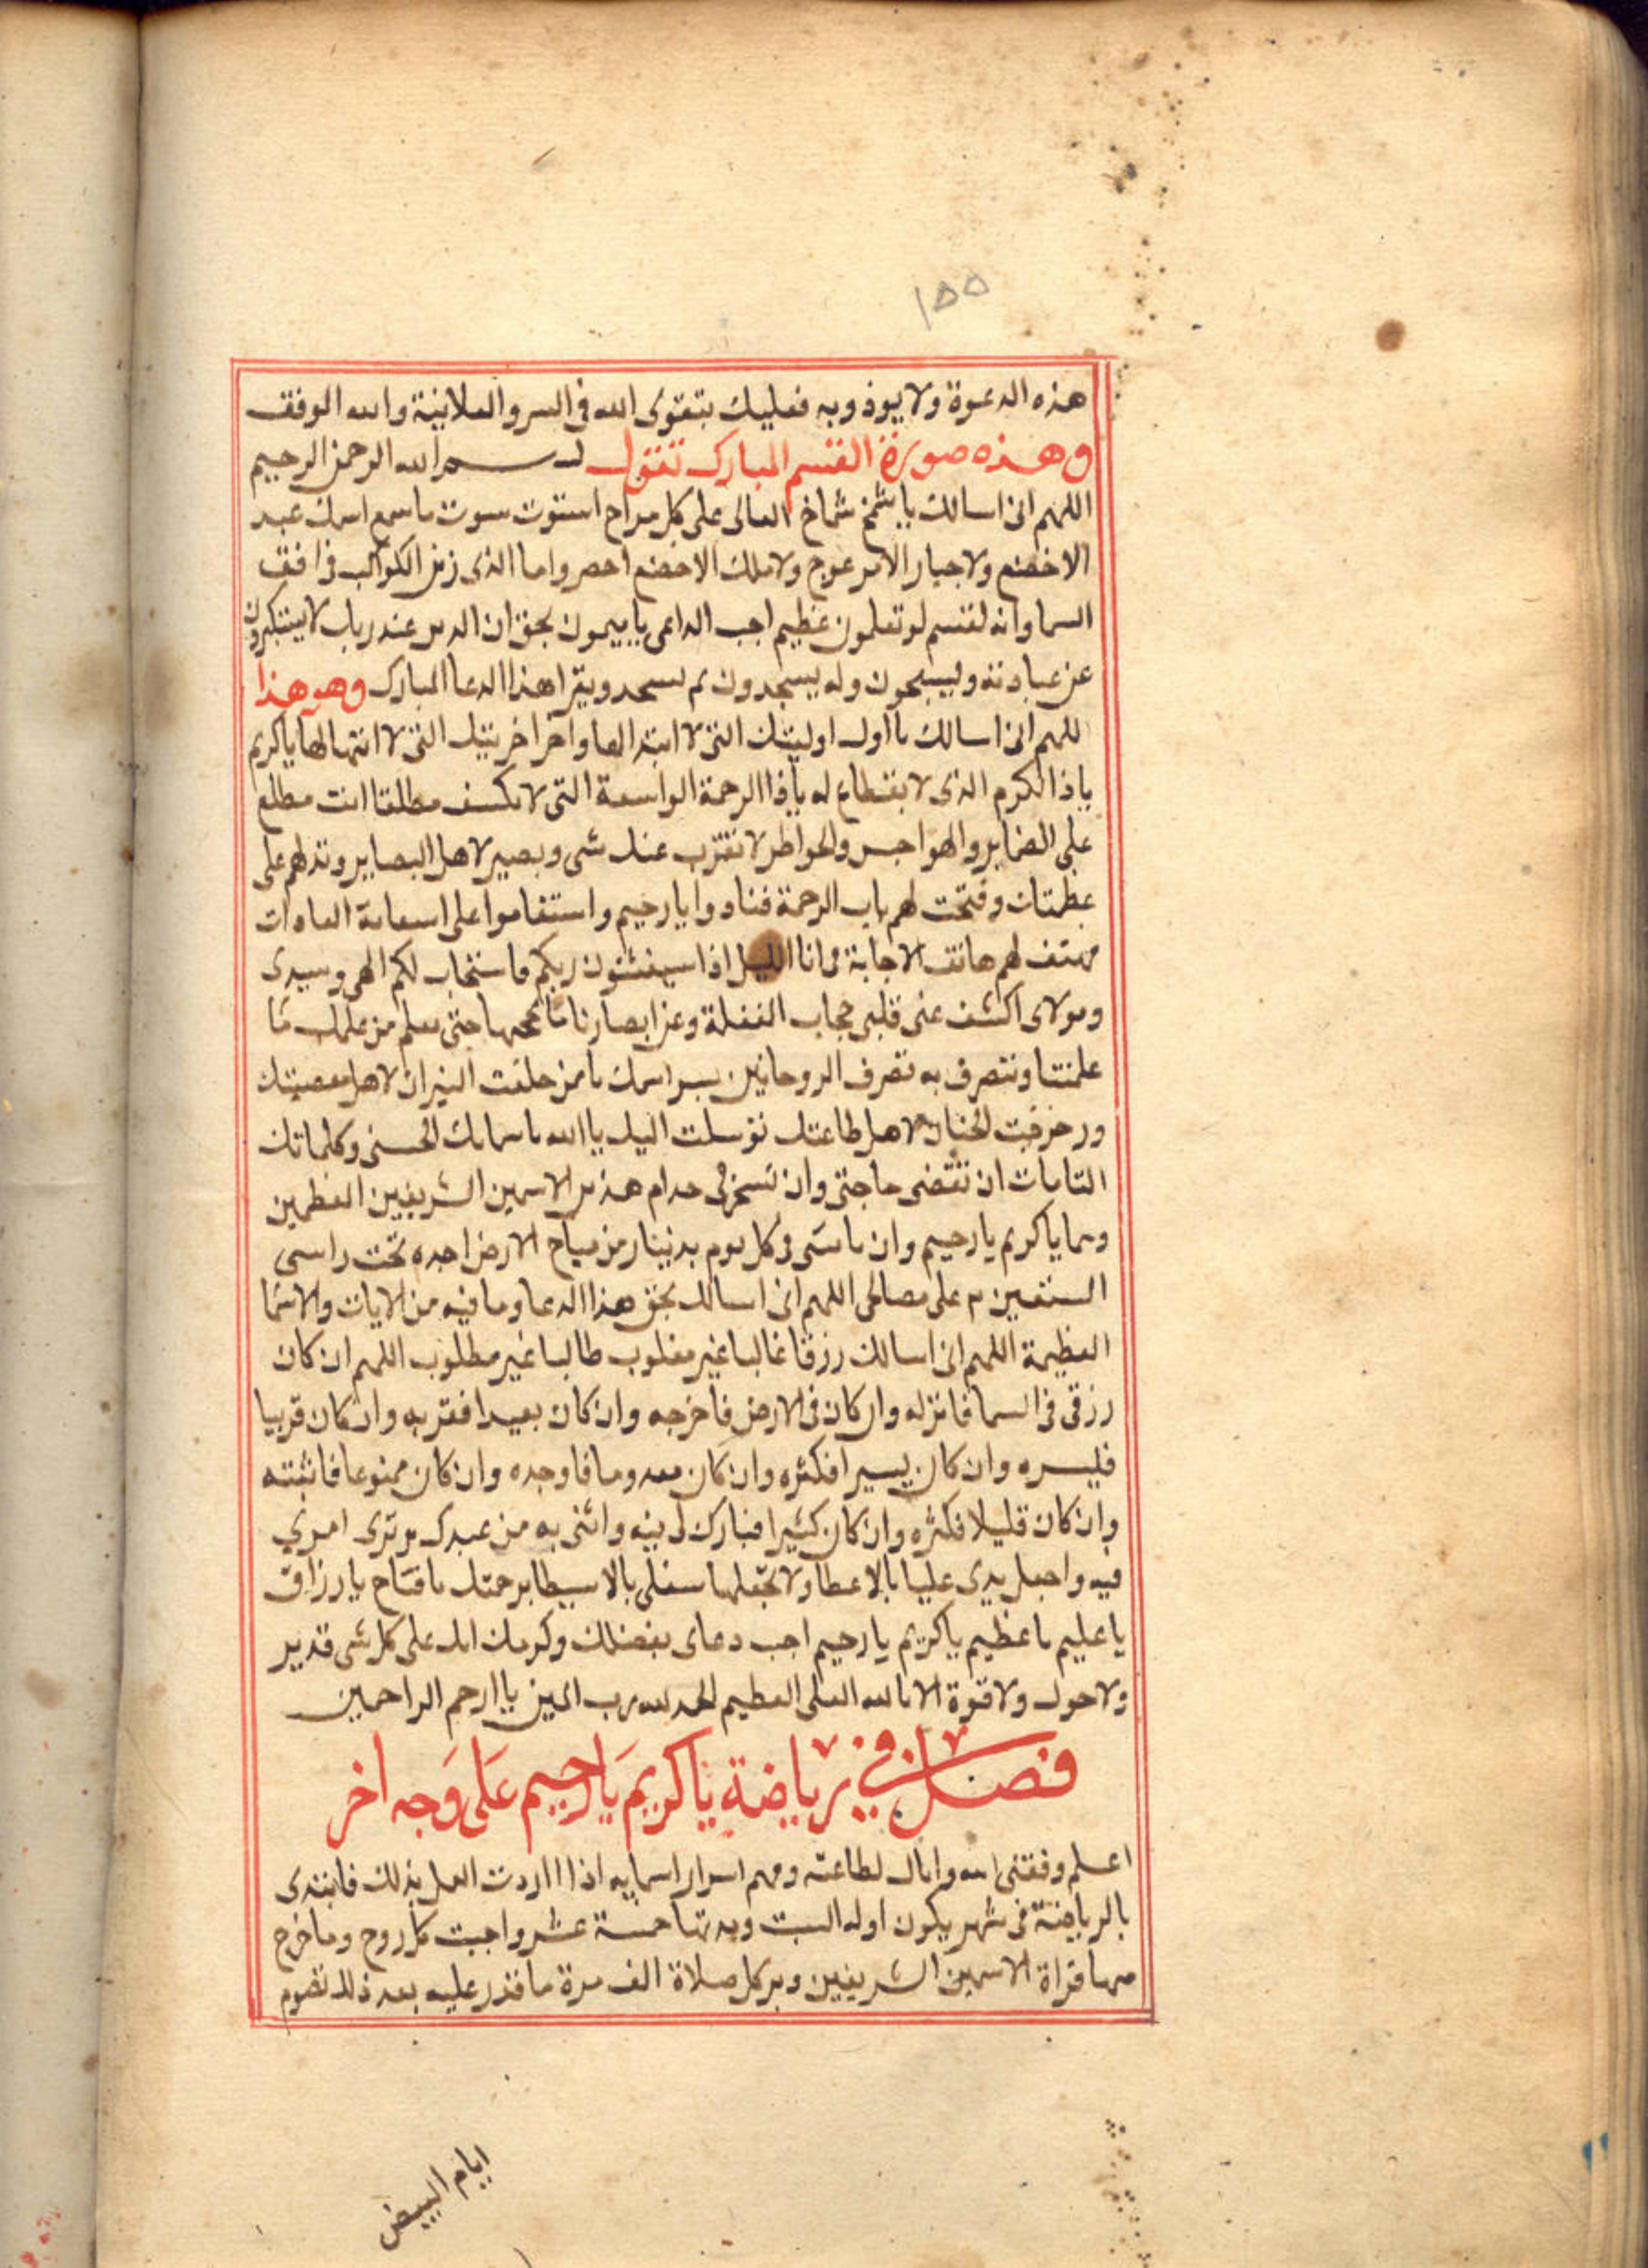 ١٥٥
هذه الدعوة ولا يوذوبه فعليك بتقوى الله فى السر والعلانية والله الموفق
وهذه صورة القسم المبارك تقول بسم الله الرحمن الرحيم
اللهم انى اسالك يا شمخ شماخ العالى على كل براح استوت سوت ما سمع اسمك عبد
الا خضع ولا جبار الا مرعوج ولا ملك الا خضع احضروا ما الذى زين الكواكب فى افق
السما وانه لقسم لو تعلمون عظيم اجب الداعى يا ميمون بحق ان الدين عند ربك لا يستكبرون
عن عبادته ويسبحون وله يسجدون ثم تسجد وتقرا هذا الدعا المبارك وهو هذا
للهم انى اسالك يا اول اوليتك التى لا ابتدا لها واخر اخريتك التى لا انتها لها يا كريم
يا ذا الكرم الذى لا يقطاع له يا ذا الرحمة الواسعة التى لا تكسف مطلقا انت مطلع
على الضماير والهواجس والخواطر لا تقترب عنك شى وبصير لاهل البصاير وتدلهم على
عظمتك وفتحت لهم باب الرحمة فنادوا يا رحيم واستقاموا على العادات
مهتف لهم هاتف الاجابة فى انا الليل اذا تستغيثون ربكم فاستجاب لكم الهى وسيدى
ومولاى اكشف عنى قلبى حجاب الغفلة وعن ابصارنا ما حتى نعلم من علمك ما
علمتنا ونتصرف به تصرف الروحانيين بسر اسمك يا من خلقت النيران لاهل معصيتك
وزخرفت الجنان لاهل طاعتك توسلت اليك يا الله باسمايك الحسنى وكلماتك
التامات ان تقضى حاجتى وان تسخر لى خدام هذين الاسمين الشريفين العظيمين
وهما يا كريم يا رحيم وان ياتينى فى كل يوم بدينار من مباح الارض اجده تحت راسى
استعين به على مصالحى اللهم انى اسالك بحق هذا الدعا وما فيه من الايات والاسما
العظيمة اللهم انى اسالك رزقا غالبا غير مغلوب طالبا غير مطلوب اللهم ان كان
رزقى فى السما فانزله وان كان فى الارض فاخرجه وان كان بعيدا فقربه وان كان قريبا
فليسره وان كان يسيرا فكثره وان كان معدوما فاوجده وان كان ممنوعا فاثبته
وان كان قليلا فكثره وان كان كثيرا فبارك لى فيه وائتنى به من عبدك امرى
فيه واجعل يدى عليا بالاعطا ولا تجعلها سفلى بالاسيطا برحمتك يا فتاح يا رزاق
يا عليم يا عظيم يا كريم يا رحيم اجب دعاى بفضلك وكرمك انك على كل شى قدير
ولا حول ولا قوة الا بالله العلى العظيم الحمد لله رب العلمين يا ارحم الراحمين
فصل فى رياضة يا كريم يا رحيم على وجه اخر
اعلم وفقنى الله واياك لطاعته وفهم اسرار اسمايه اذا اردت العمل بذلك فابتدى
بالرياضة فى شهر يكون اوله السبت ومدتها خمسة عشر واجتنب كل روح وما خرج
منها قراة الاسمين الشريفين دبر كل صلاة الف مرة ما قدر عليه بعد ذلك تصوم
ايام البيض